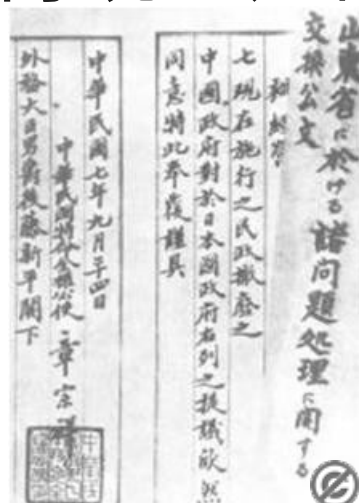 山東省に於ける諸問題処理に関する
交換公文
七 現在施行之民政撤廃之
中國政府對於日本國政府右列之提議欣然
同意特此奉覆謹具
中華民國七年九月二十四日
中華民國特命全權公使 章宗祥
外務大臣男爵後藤新平閣下